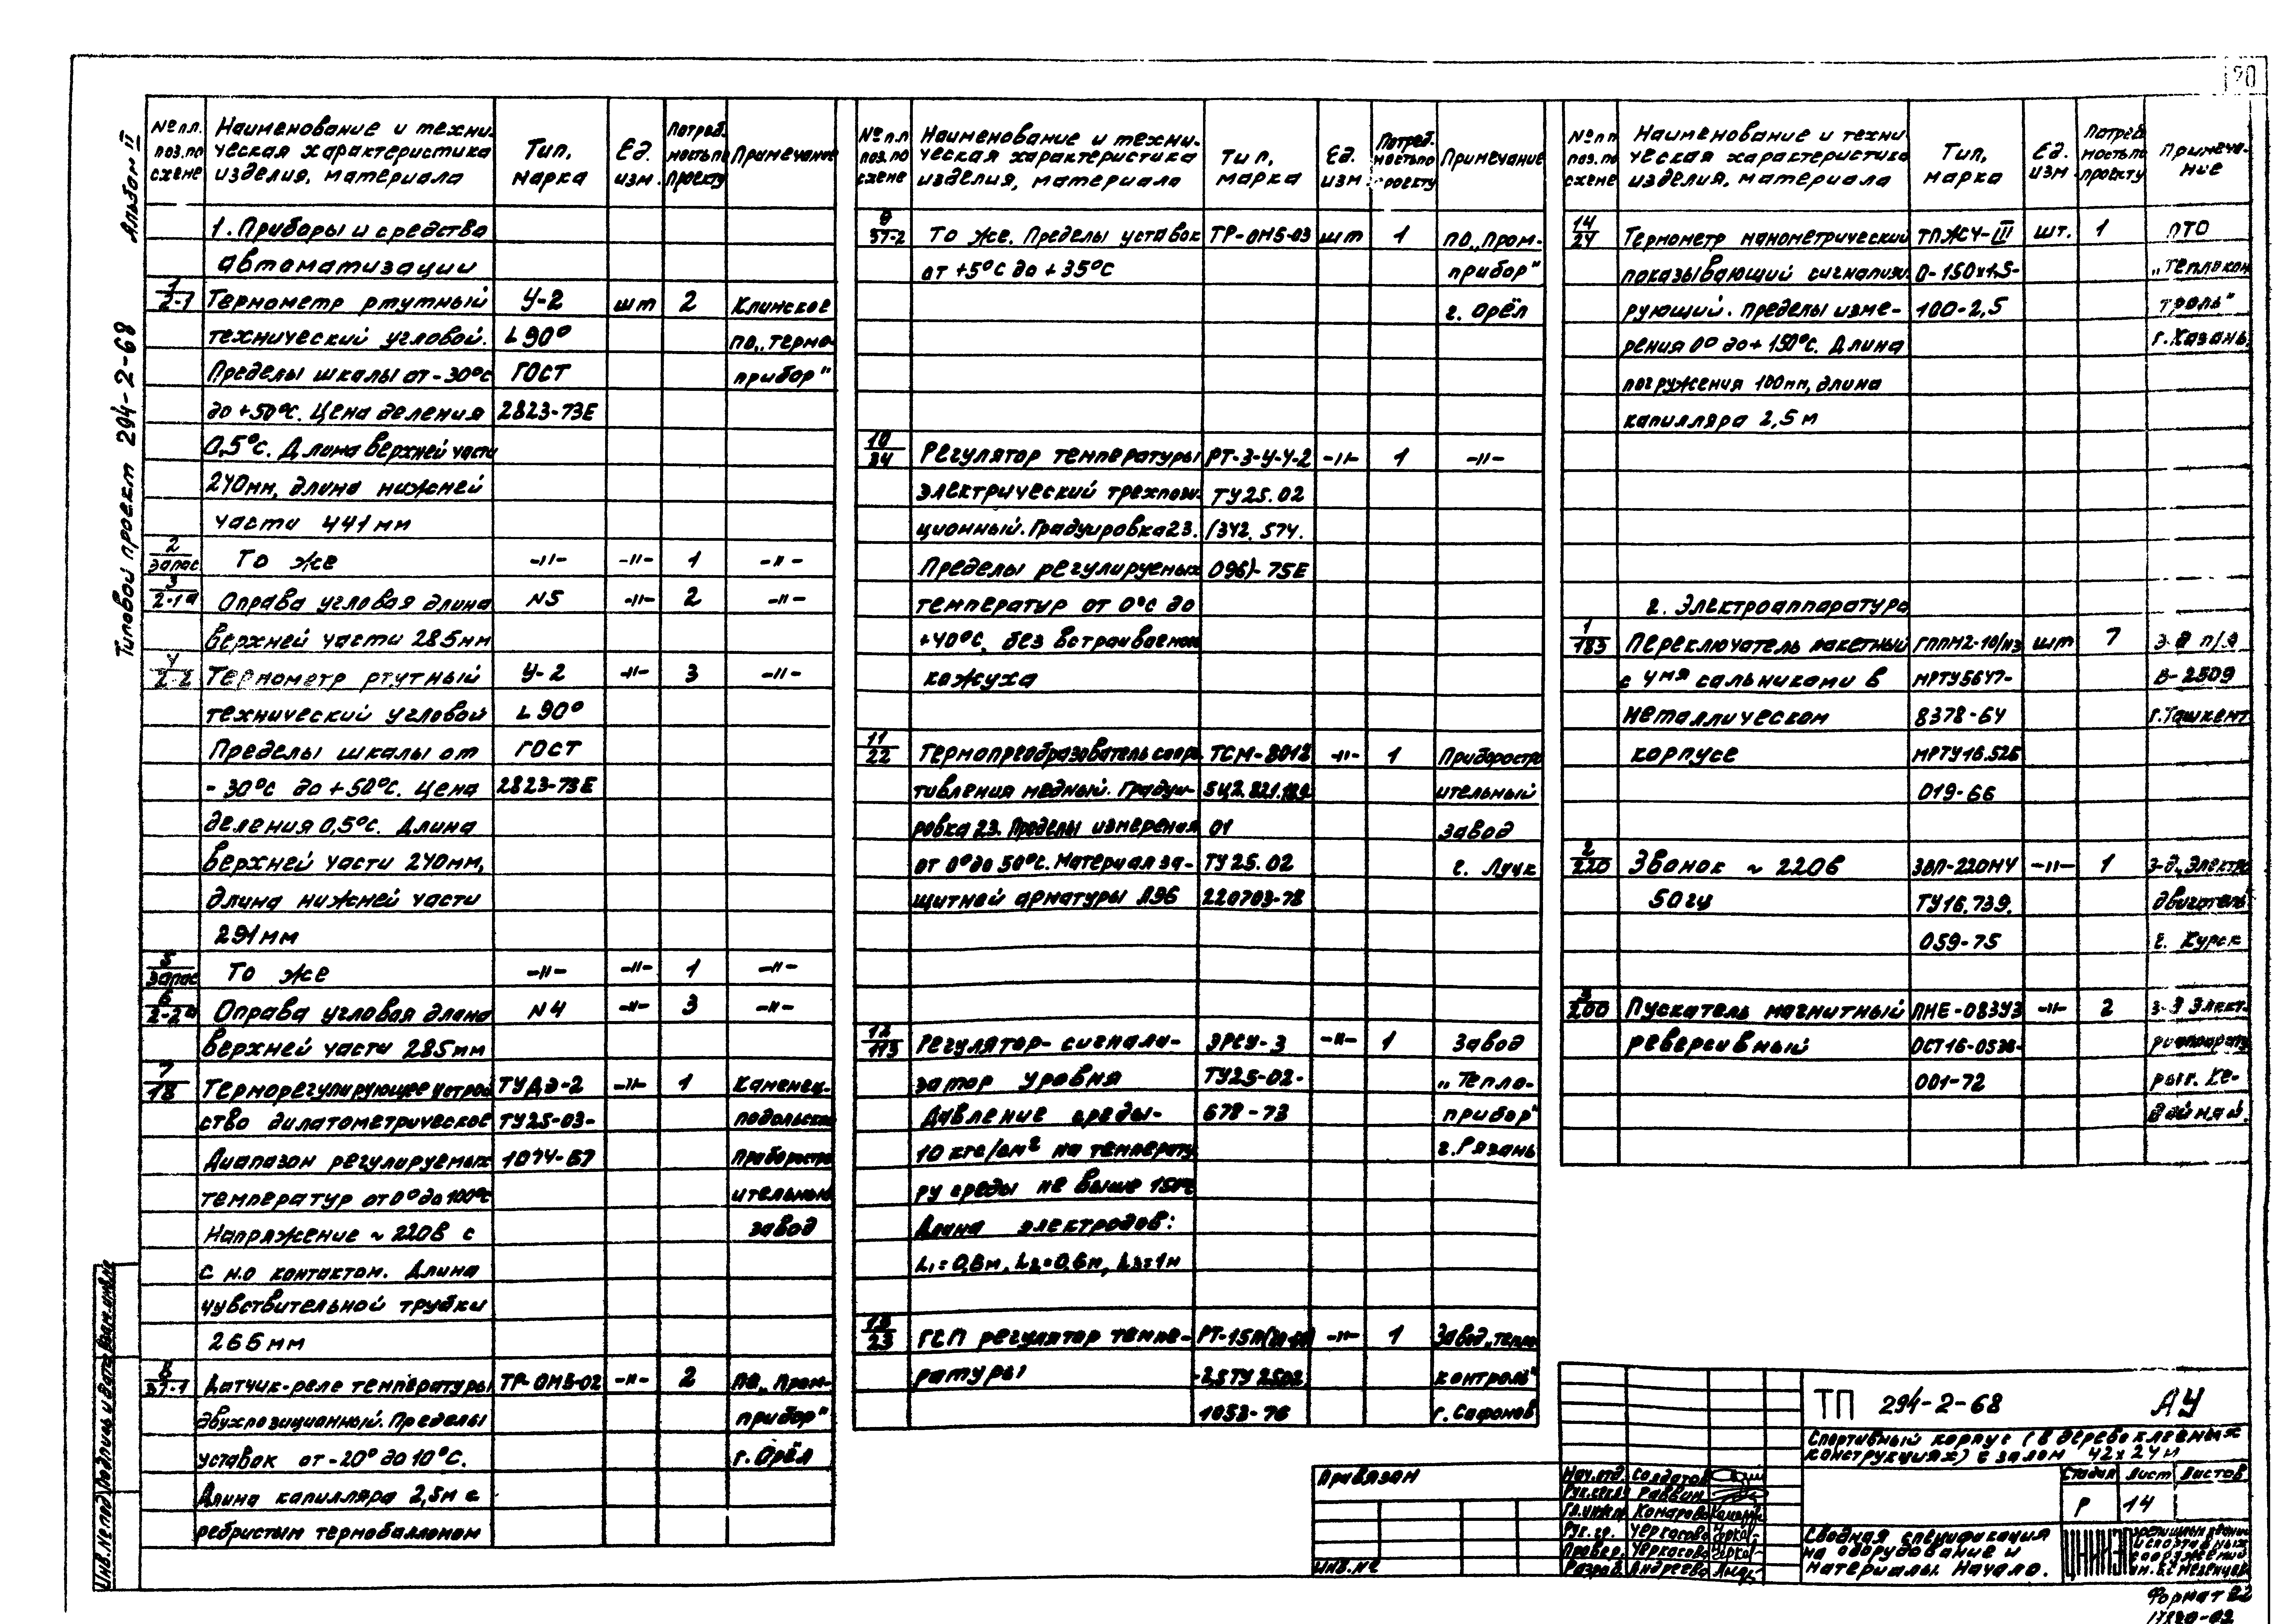 Альбом II
Типовой проект 294-2-68
№ п.п. поз. по схеме | Наименование и техническая характеристика изделия, материала | Тип, марка | Ед. изм. | Потреб. мость по проекту | Примечание
1. Приборы и средства
автоматизации
1/2-1 Термометр ртутный У-2 шт 2 Клинское
технический угловой. L 90° по „Термо-
Пределы шкалы от -30°С ГОСТ прибор"
до +50°С. Цена деления 2823-73Е
0,5°С. Длина верхней части
240мм, длина нижней
части 441мм
2/запас То же -"- -"- 1 -"-
3/2-1а Оправа угловая длина N5 -"- 2 -"-
верхней части 285мм
4/2-2 Термометр ртутный У-2 -"- 3 -"-
технический угловой L 90°
Пределы шкалы от ГОСТ
-30°С до +50°С. Цена 2823-73Е
деления 0,5°С. Длина
верхней части 240мм,
длина нижней части
291мм
5/запас То же -"- -"- 1 -"-
6/2-2а Оправа угловая длина N4 -"- 3 -"-
верхней части 285мм
7/18 Терморегулирующее устрой ТУДЭ-2 -"- 1 Каменец-
ство дилатометрическое ТУ25-03- подольский
Диапазон регулируемых 1074-67 Приборостро
температур от 0° до 100°С ительный
Напряжение ~ 220В с завод
с н.о контактом. Длина
чувствительной трубки
266мм
8/37-1 Датчик-реле температуры ТР-ОМ5-02 -"- 2 ПО „Пром-
двухпозиционный. Пределы прибор"
уставок от -20° до 10°С. г. Орёл
Длина капилляра 2,5м с
ребристым термобаллоном
№ п.п поз. по схеме | Наименование и техническая характеристика изделия, материала | Тип, марка | Ед. изм | Потреб. мость по проекту | Примечание
9/37-2 То же. Пределы уставок ТР-ОМ5-03 шт 1 ПО „Пром-
от +5°С до +35°С прибор"
г. Орёл
10/34 Регулятор температуры РТ-3-У-У-2 -"- 1 -"-
электрический трехпози- ТУ25.02
ционный. Градуировка 23. (342. 574.
Пределы регулируемых 096)-75Е
температур от 0°С до
+40°С, без встраиваемого
кожуха
11/22 Термопреобразователь сопро ТСМ-8012 -"- 1 Приборостро
тивления медный. Градуи- 5Ц2.821.189 ительный
ровка 23. Пределы измерения 01 завод
от 0° до 50°С. Материал за- ТУ25.02 г. Луцк
щитной арматуры Л96 220703-78
12/193 Регулятор-сигнали- ЭРСУ-3 -"- 1 Завод
затор уровня ТУ25-02- „Тепло-
Давление среды- 678-73 прибор"
10 кгс/см² на температу г. Рязань
ру среды не выше 150°С
Длина электродов:
L₁=0,6м, L₂=0,6м, L₃=1м
13/23 ГСП регулятор темпе- -"- 1 Завод „тепло
ратуры -2,5ТУ 2502 контроль"
1053-76 г. Сафоново
№ п.п поз. по схеме | Наименование и техническая характеристика изделия, материала | Тип, марка | Ед. изм | Потреб мость по проекту | Примечание
14/24 Термометр манометрический ТПЖСЧ-III шт. 1 ПТО
показывающий сигнализи 0-150х1,5- „Теплокон
рующий. Пределы изме- 100-2,5 троль"
рения 0° до + 150°С. Длина г. Казань
погружения 100мм, длина
капилляра 2,5м
2. Электроаппаратура
1/183 Переключатель пакетный ГППМ2-10/Н3 шт 7 з-д п/я
с 4мя сальниками в МРТУ5647- В-2509
металлическом 8378-64 г. Ташкент
корпусе МРТУ16.526
019-66
2/220 Звонок ~ 220В ЗВП-220М4 -"- 1 з-д „Электро
50гц ТУ16.739. двигатель"
059-75 г. Курск
3/200 Пускатель магнитный ПМЕ-083У3 -"- 2 з-д Элект-
реверсивный ОСТ16-0536- роаппаратуры
001-72
Привязан
Инв. №
Нач. отд. Солдатов
Рук. сект. Раввин
Гл. инж. пр. Комарова
Рук. гр. Черкасова
Провер. Черкасова
Разраб. Андреева
ТП 294-2-68 АУ
Спортивный корпус (в деревоклееных
конструкциях) с залом 42х24м
Стадия Лист Листов
Р 14
Сводная спецификация
на оборудование и
материалы. Начало.
Инв. № подл. Подпись и дата Взам. инв. №
Формат 22
17820-02